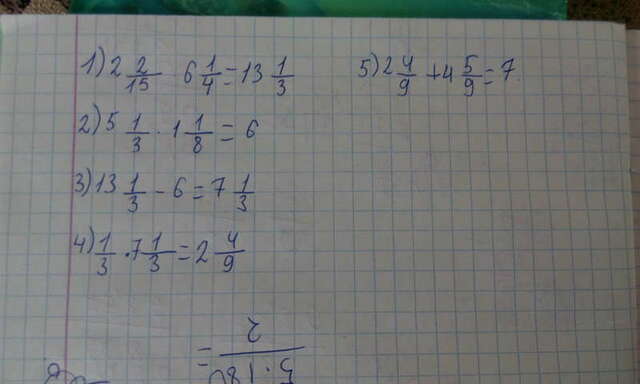 1) 2 2/15 6 1/4 = 13 1/3
2) 5 1/3 · 1 1/8 = 6
3) 13 1/3 - 6 = 7 1/3
4) 1/3 · 7 1/3 = 2 4/9
5) 2 4/9 + 4 5/9 = 7